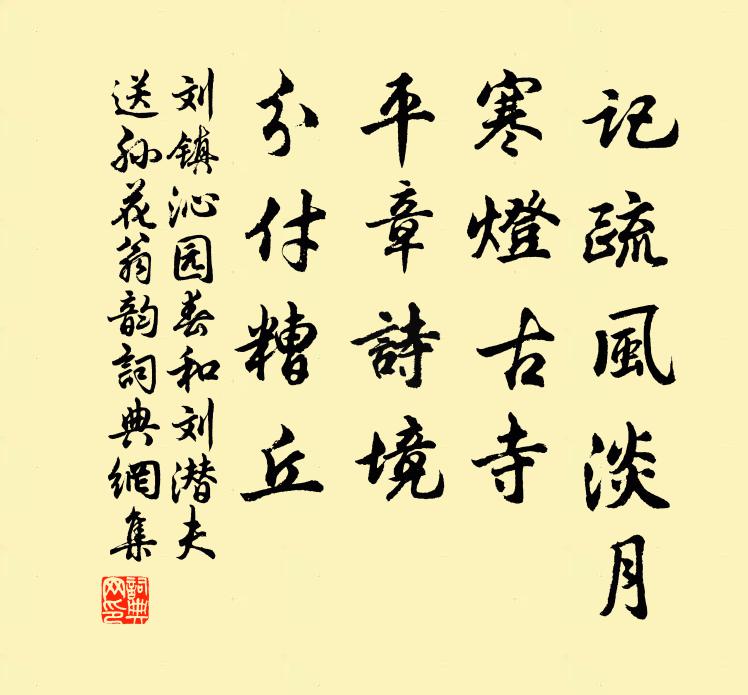 記疏風淡月
寒燈古寺
平章詩境
分付糟丘
刘镇沁园春和刘潜夫
送孙花翁韵詞典網集
詞典網印